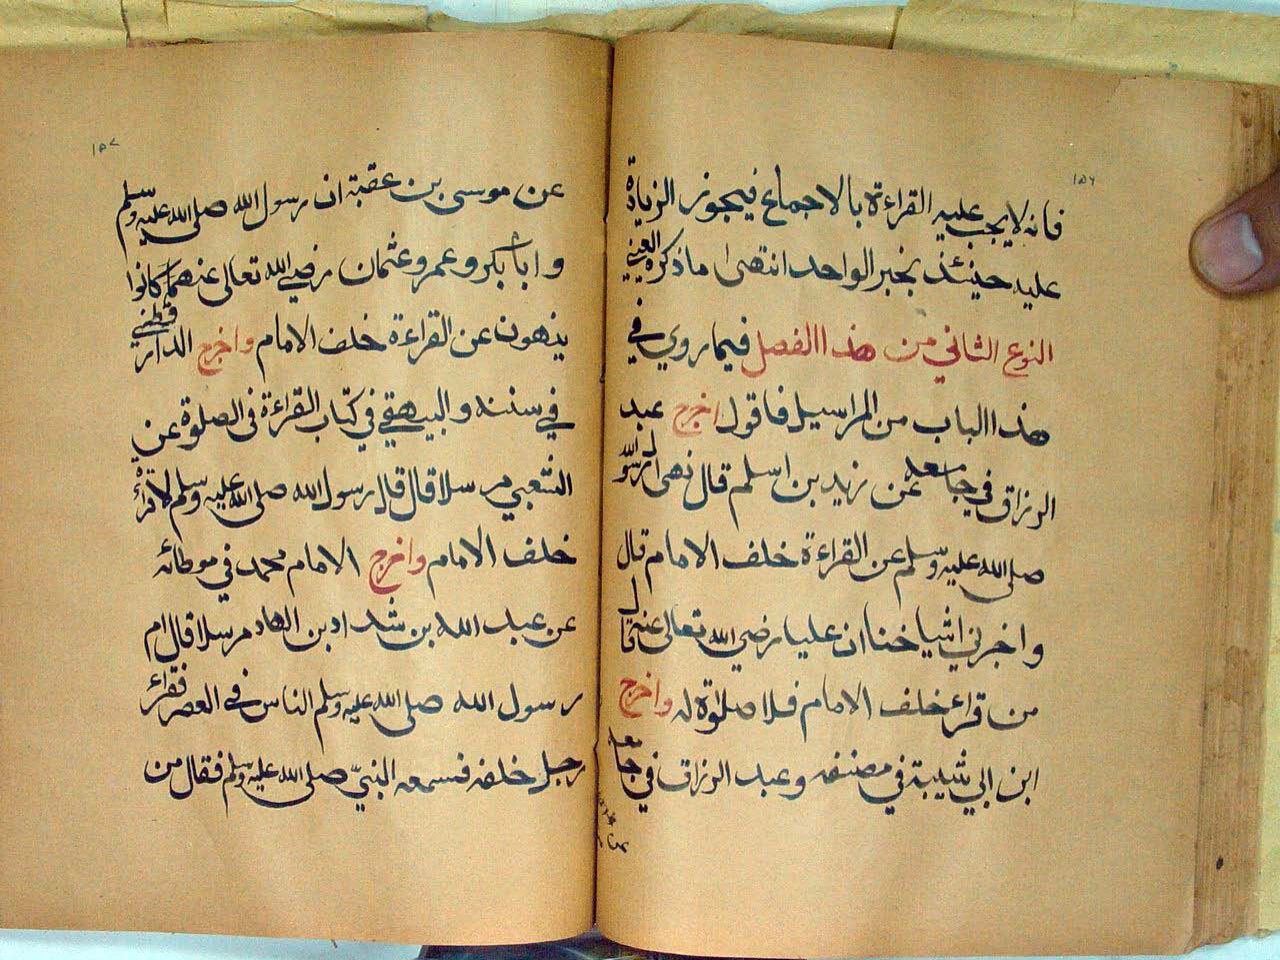 ١٥٦
فانه لا يجب عليه القراءة بالاجماع فيجوز الزيادة
عليه حينئذ بخبر الواحد انتهى ما ذكره العيني
النوع الثاني من هذا الفصل فيما روي في
هذا الباب من المراسيل فاقول اخرج عبد
الرزاق في جامعه عن زيد بن اسلم قال نهى رسول الله
صلى الله عليه وسلم عن القراءة خلف الامام قال
و اخبرني اشياخنا ان عليا رضي الله تعالى عنه قال
من قراء خلف الامام فلا صلوة له واخرج
ابن ابي شيبة في مصنفه وعبد الرزاق في جامعه
عن
١٥٧
عن موسى بن عقبة ان رسول الله صلى الله عليه وسلم
و ابا بكر و عمر و عثمان رضي الله تعالى عنهم كانوا
ينهون عن القراءة خلف الامام واخرج الدارقطني
في سننه و البيهقي في كتاب القراءة في الصلوة عن
الشعبي مرسلا قال قال رسول الله صلى الله عليه وسلم لا قراءة
خلف الامام واخرج الامام محمد في موطائه
عن عبد الله بن شداد بن الهاد مرسلا قال ام
رسول الله صلى الله عليه وسلم الناس في العصر فقراء
رجل خلفه فسمعه النبي صلى الله عليه وسلم فقال من